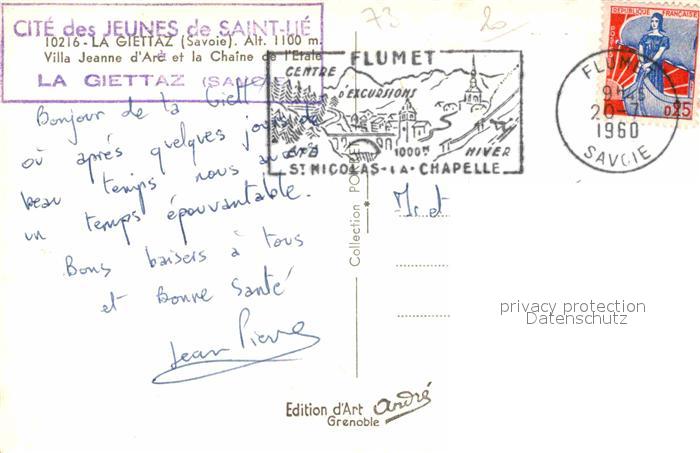 CITÉ des JEUNES de SAINT-LIÉ
10216 - LA GIETTAZ (Savoie). Alt. 1100 m.
Villa Jeanne d'Arc et la Chaîne de l'Etale
LA GIETTAZ (SAVOIE)
Bonjour de la Giett
où après quelques jours de
beau temps nous avons
un temps épouvantable.
Bons baisers à tous
et Bonne Santé
Jean Pierre
73
20
FLUMET
CENTRE
D'EXCURSIONS
1000M HIVER
ST NICOLAS-LA-CHAPELLE
REPUBLIQUE FRANÇAISE
0,25
FLUMET
20-7
1960
SAVOIE
Mr et
Collection
privacy protection
Datenschutz
Edition d'Art André
Grenoble